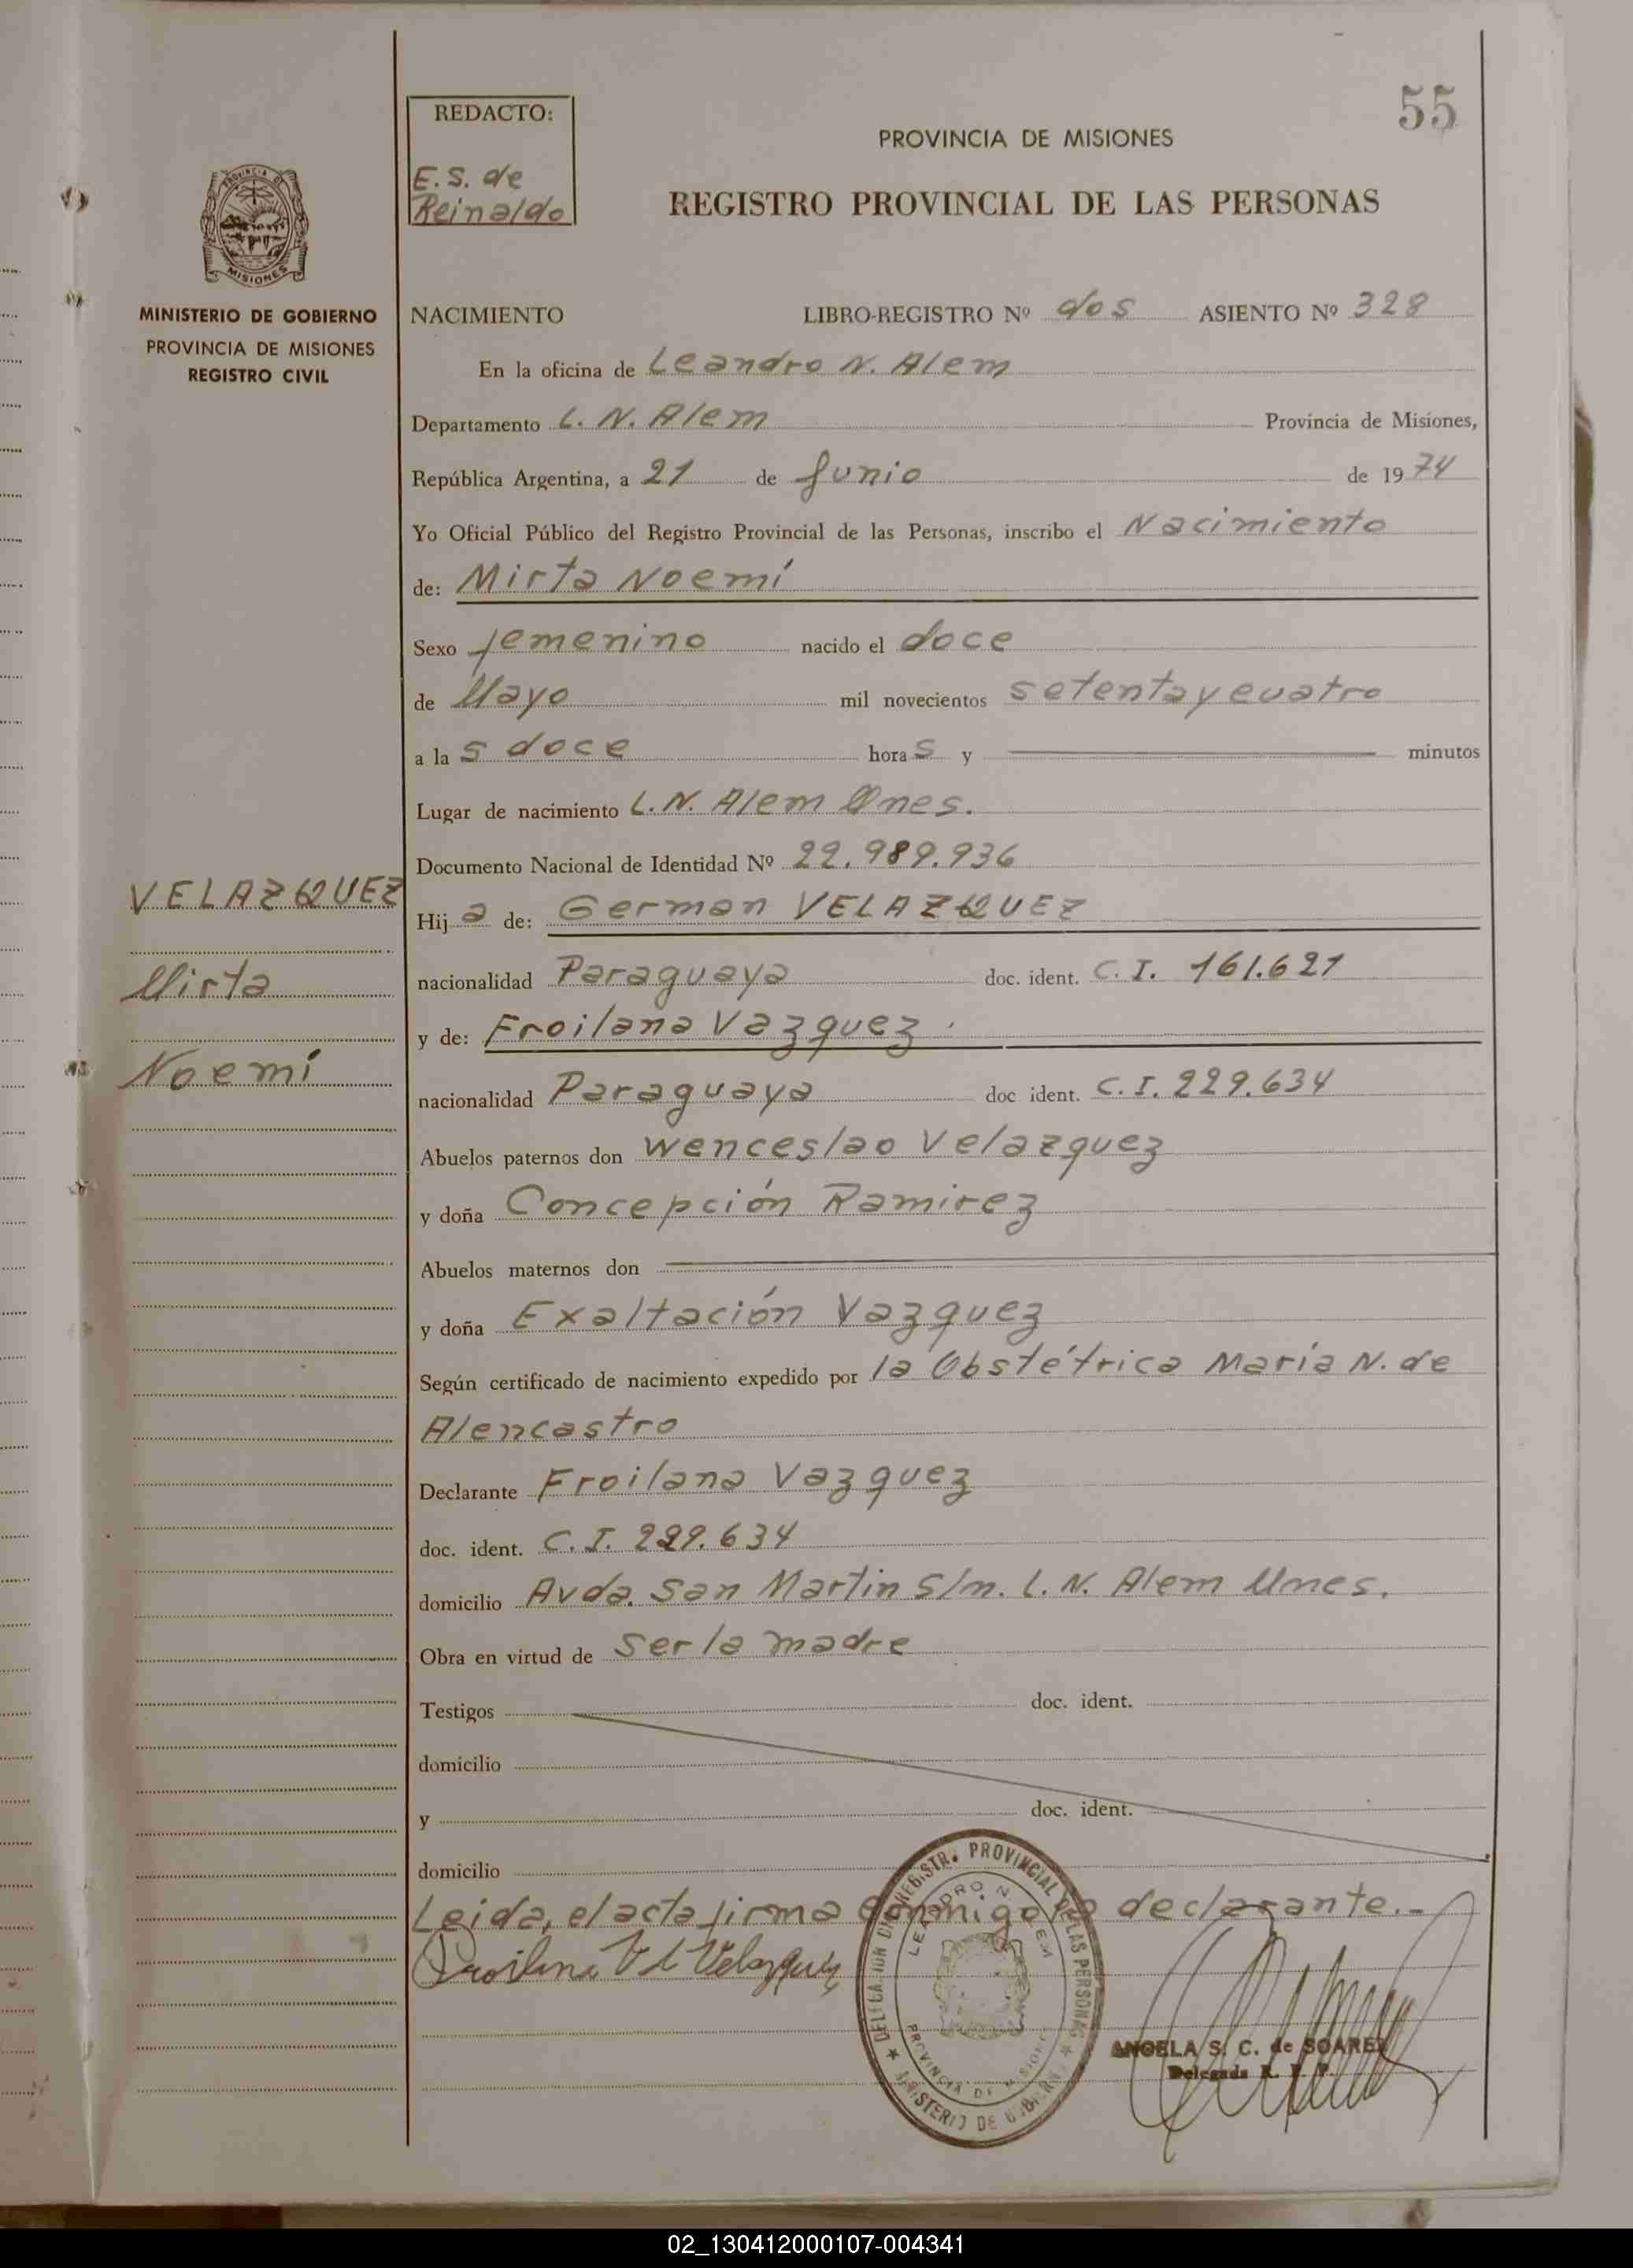 55
REDACTO:
E.S. de
Reinaldo
PROVINCIA DE MISIONES
REGISTRO PROVINCIAL DE LAS PERSONAS
MISIONES
MINISTERIO DE GOBIERNO
PROVINCIA DE MISIONES
REGISTRO CIVIL
NACIMIENTO LIBRO-REGISTRO Nº dos ASIENTO Nº 328
En la oficina de Leandro N. Alem
Departamento L. N. Alem Provincia de Misiones,
República Argentina, a 21 de Junio de 1974
Yo Oficial Público del Registro Provincial de las Personas, inscribo el Nacimiento
de: Mirta Noemí
Sexo femenino nacido el doce
de Mayo mil novecientos setenta y cuatro
a las doce horas y minutos
Lugar de nacimiento L.N. Alem Mnes.
Documento Nacional de Identidad Nº 22.989.936
VELAZQUEZ
Mirta
Noemí
Hija de: German VELAZQUEZ
nacionalidad Paraguaya doc. ident. C.I. 161.621
y de: Froilana Vazquez
nacionalidad Paraguaya doc ident. C.I. 229.634
Abuelos paternos don Wenceslao Velazquez
y doña Concepción Ramirez
Abuelos maternos don
y doña Exaltación Vazquez
Según certificado de nacimiento expedido por la Obstétrica María N. de
Alencastro
Declarante Froilana Vazquez
doc. ident. C.I. 229.634
domicilio Avda. San Martin S/n. L. N. Alem Mnes.
Obra en virtud de ser la madre
Testigos doc. ident.
domicilio
y doc. ident.
domicilio
Leida, el acta firma conmigo la declarante.-
Froilana V de Velazquez
DELEGACION DEL REGISTR. PROVINCIAL DE LAS PERSONAS
MINISTERIO DE GOBIERNO
LEANDRO N. ALEM
PROVINCIA DE MISIONES
ANGELA S. C. de SOAREZ
Delegada R. P. P.
02_130412000107-004341